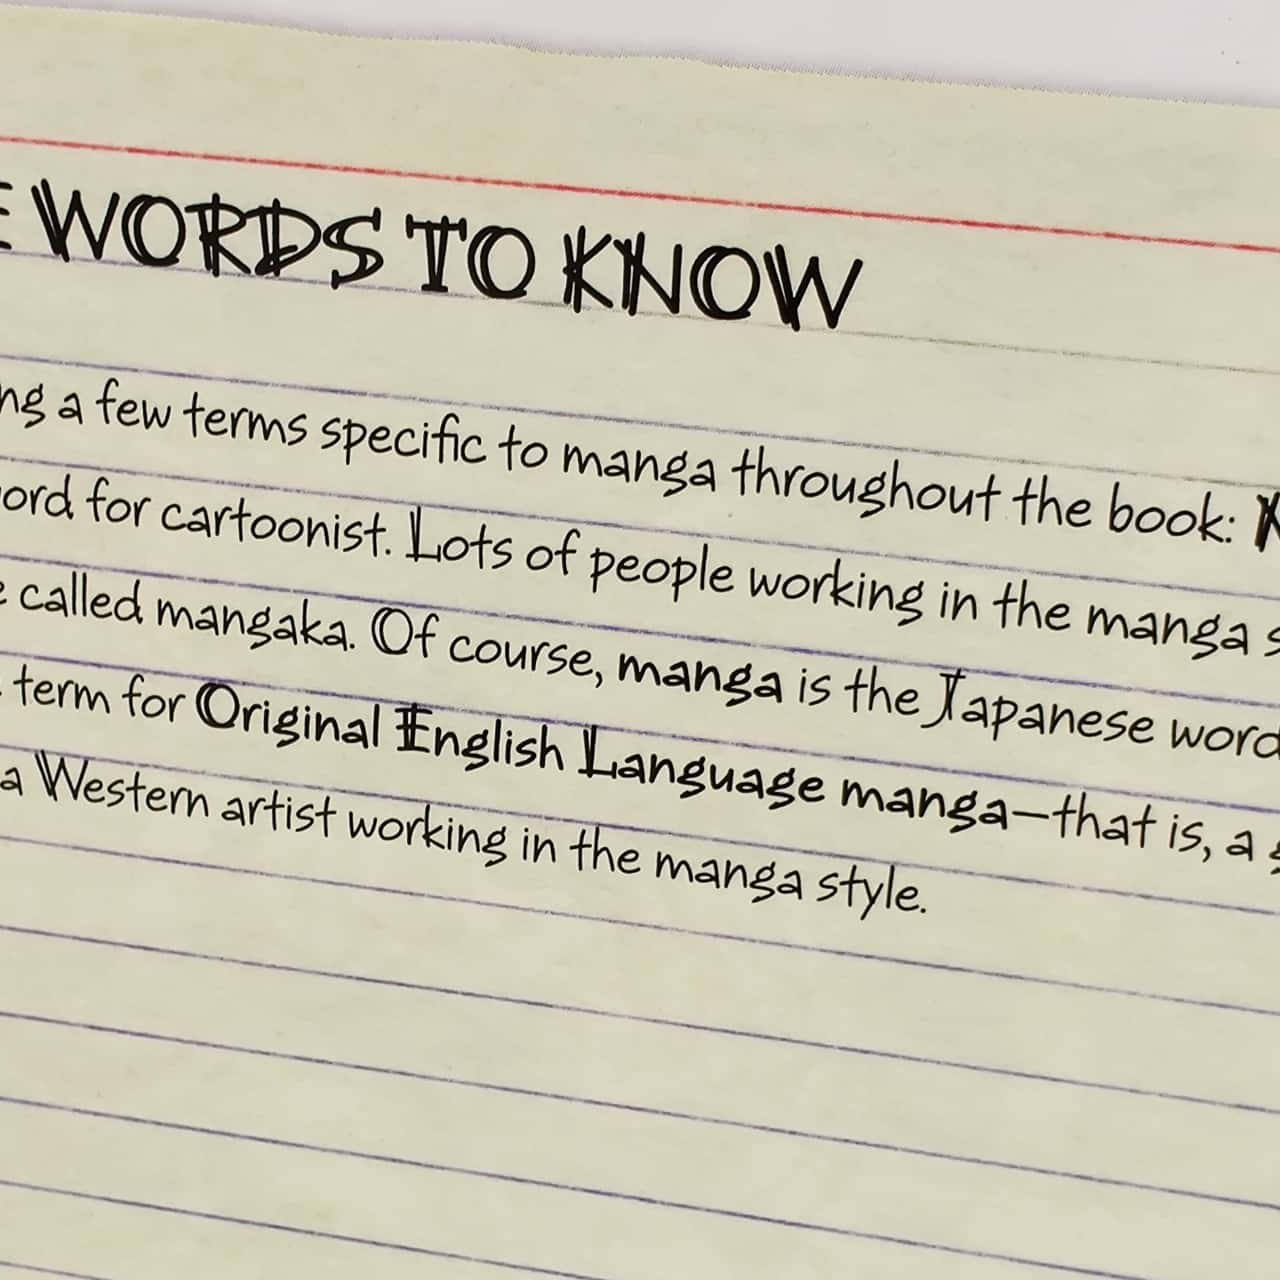 WORDS TO KNOW
a few terms specific to manga throughout the book:
for cartoonist. Lots of people working in the manga
called mangaka. Of course, manga is the Japanese word
term for Original English Language manga—that is, a
a Western artist working in the manga style.